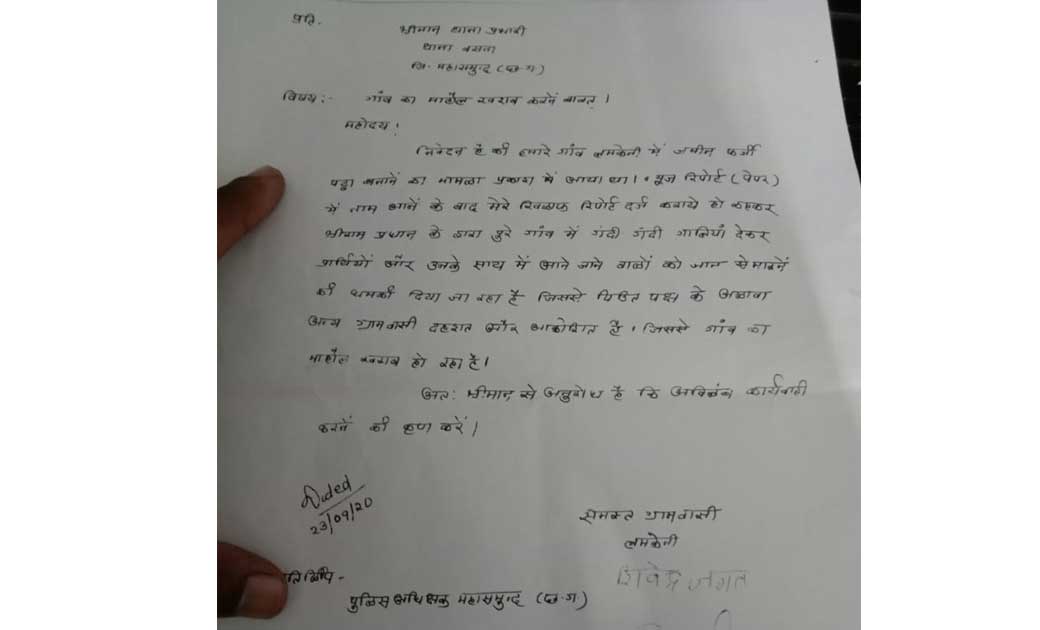 प्रति.
श्रीमान थाना प्रभारी
थाना बसना
जि. महासमुन्द (छ.ग.)
विषय:- गाँव का माहौल खराब करनें बाबत् ।
महोदय !
निवेदन है की हमारे गाँव लमकेनी में जमीन फर्जी
पट्टा बनानें का मामला प्रकाश में आया था। न्यूज रिपोर्ट (पेपर)
में नाम आनें के बाद मेरे खिलाफ रिपोर्ट दर्ज कराये हो कहकर
श्रीराम प्रधान के द्वारा पुरे गाँव में गंदी गंदी गालियाँ देकर
प्रार्थियों और उनके साथ में आने जाने वालों को जान से मारनें
की धमकी दिया जा रहा है जिससे पिडित पक्ष के अलावा
अन्य ग्रामवासी दहशत और आक्रोशित है। जिससे गाँव का
माहौल खराब हो रहा है।
अत: श्रीमान से अनुरोध है कि अविलंब कार्यवाही
करनें की कृपा करें।
23/09/20
समस्त ग्रामवासी
लमकेनी
प्रतिलिपि -
पुलिस अधिक्षक महासमुन्द (छ.ग.)